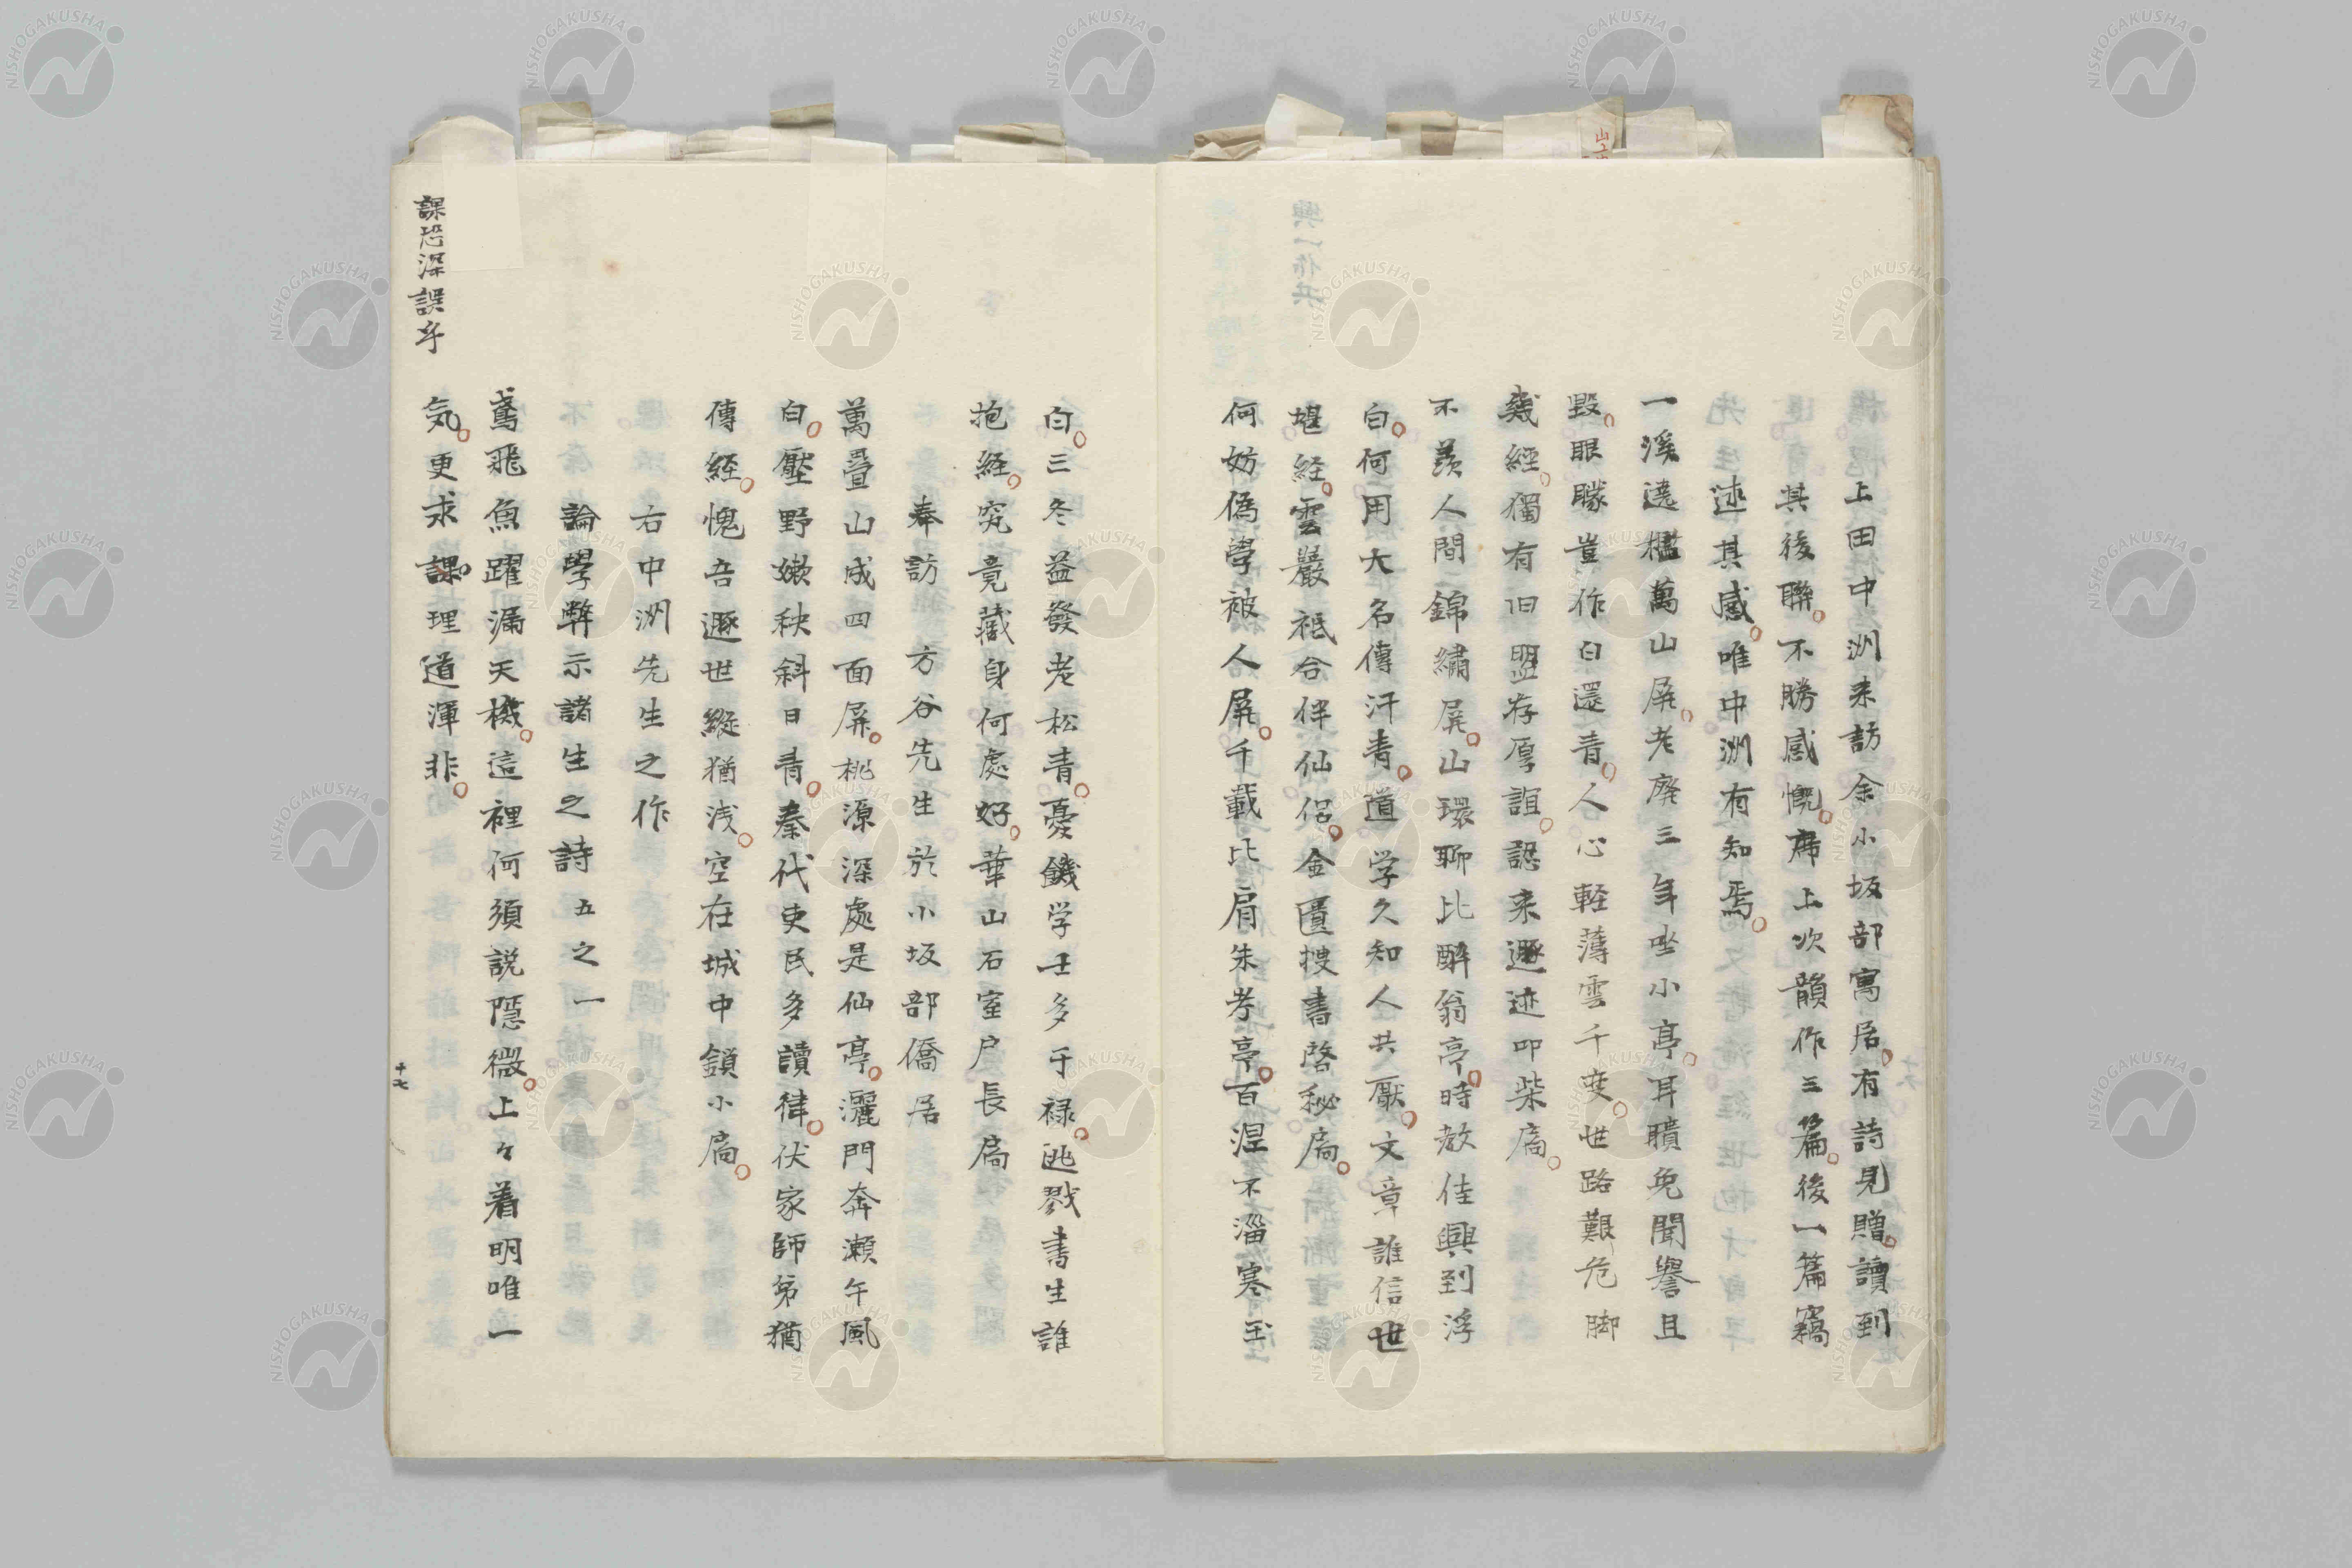 上田中洲来訪余小坂部寓居。有詩見贈。讀到
其後聯。不勝感慨。席上次韻作三篇。後一篇竊
述其感。唯中洲有知焉。
一溪遶檻萬山屏。老廃三年坐小亭。耳聵免聞譽且
毀。眼矇豈作白還青。人心軽薄雲千変。世路艱危脚
幾經。獨有旧盟存厚誼。認来遯迹叩柴扃。
不羨人間錦繡屏。山環聊比醉翁亭。時教佳興到浮
白。何用大名傳汗青。道学久知人共厭。文章誰信世
堪経。雲巖祗合伴仙侶。金匱捜書啓秘扃。
何妨偽學被人屏。千載比肩朱考亭。百涅不淄寒玉
白。三冬益發老松青。憂饑学士多于禄。逃戮書生誰
抱経。究竟藏身何處好。華山石室戸長扃
奉訪方谷先生於小坂部僑居
萬疊山成四面屏。桃源深處是仙亭。灑門奔瀬午風
白。壓野嫩秧斜日青。秦代吏民多讀律。伏家師弟猶
傳経。愧吾遯世縦猶浅。空在城中鎖小扃。
右中洲先生之作
論學弊示諸生之詩五之一
鳶飛魚躍漏天機。這裡何須説隠微。上々着明唯一
気。更求課理道渾非。
課恐深誤乎
十七